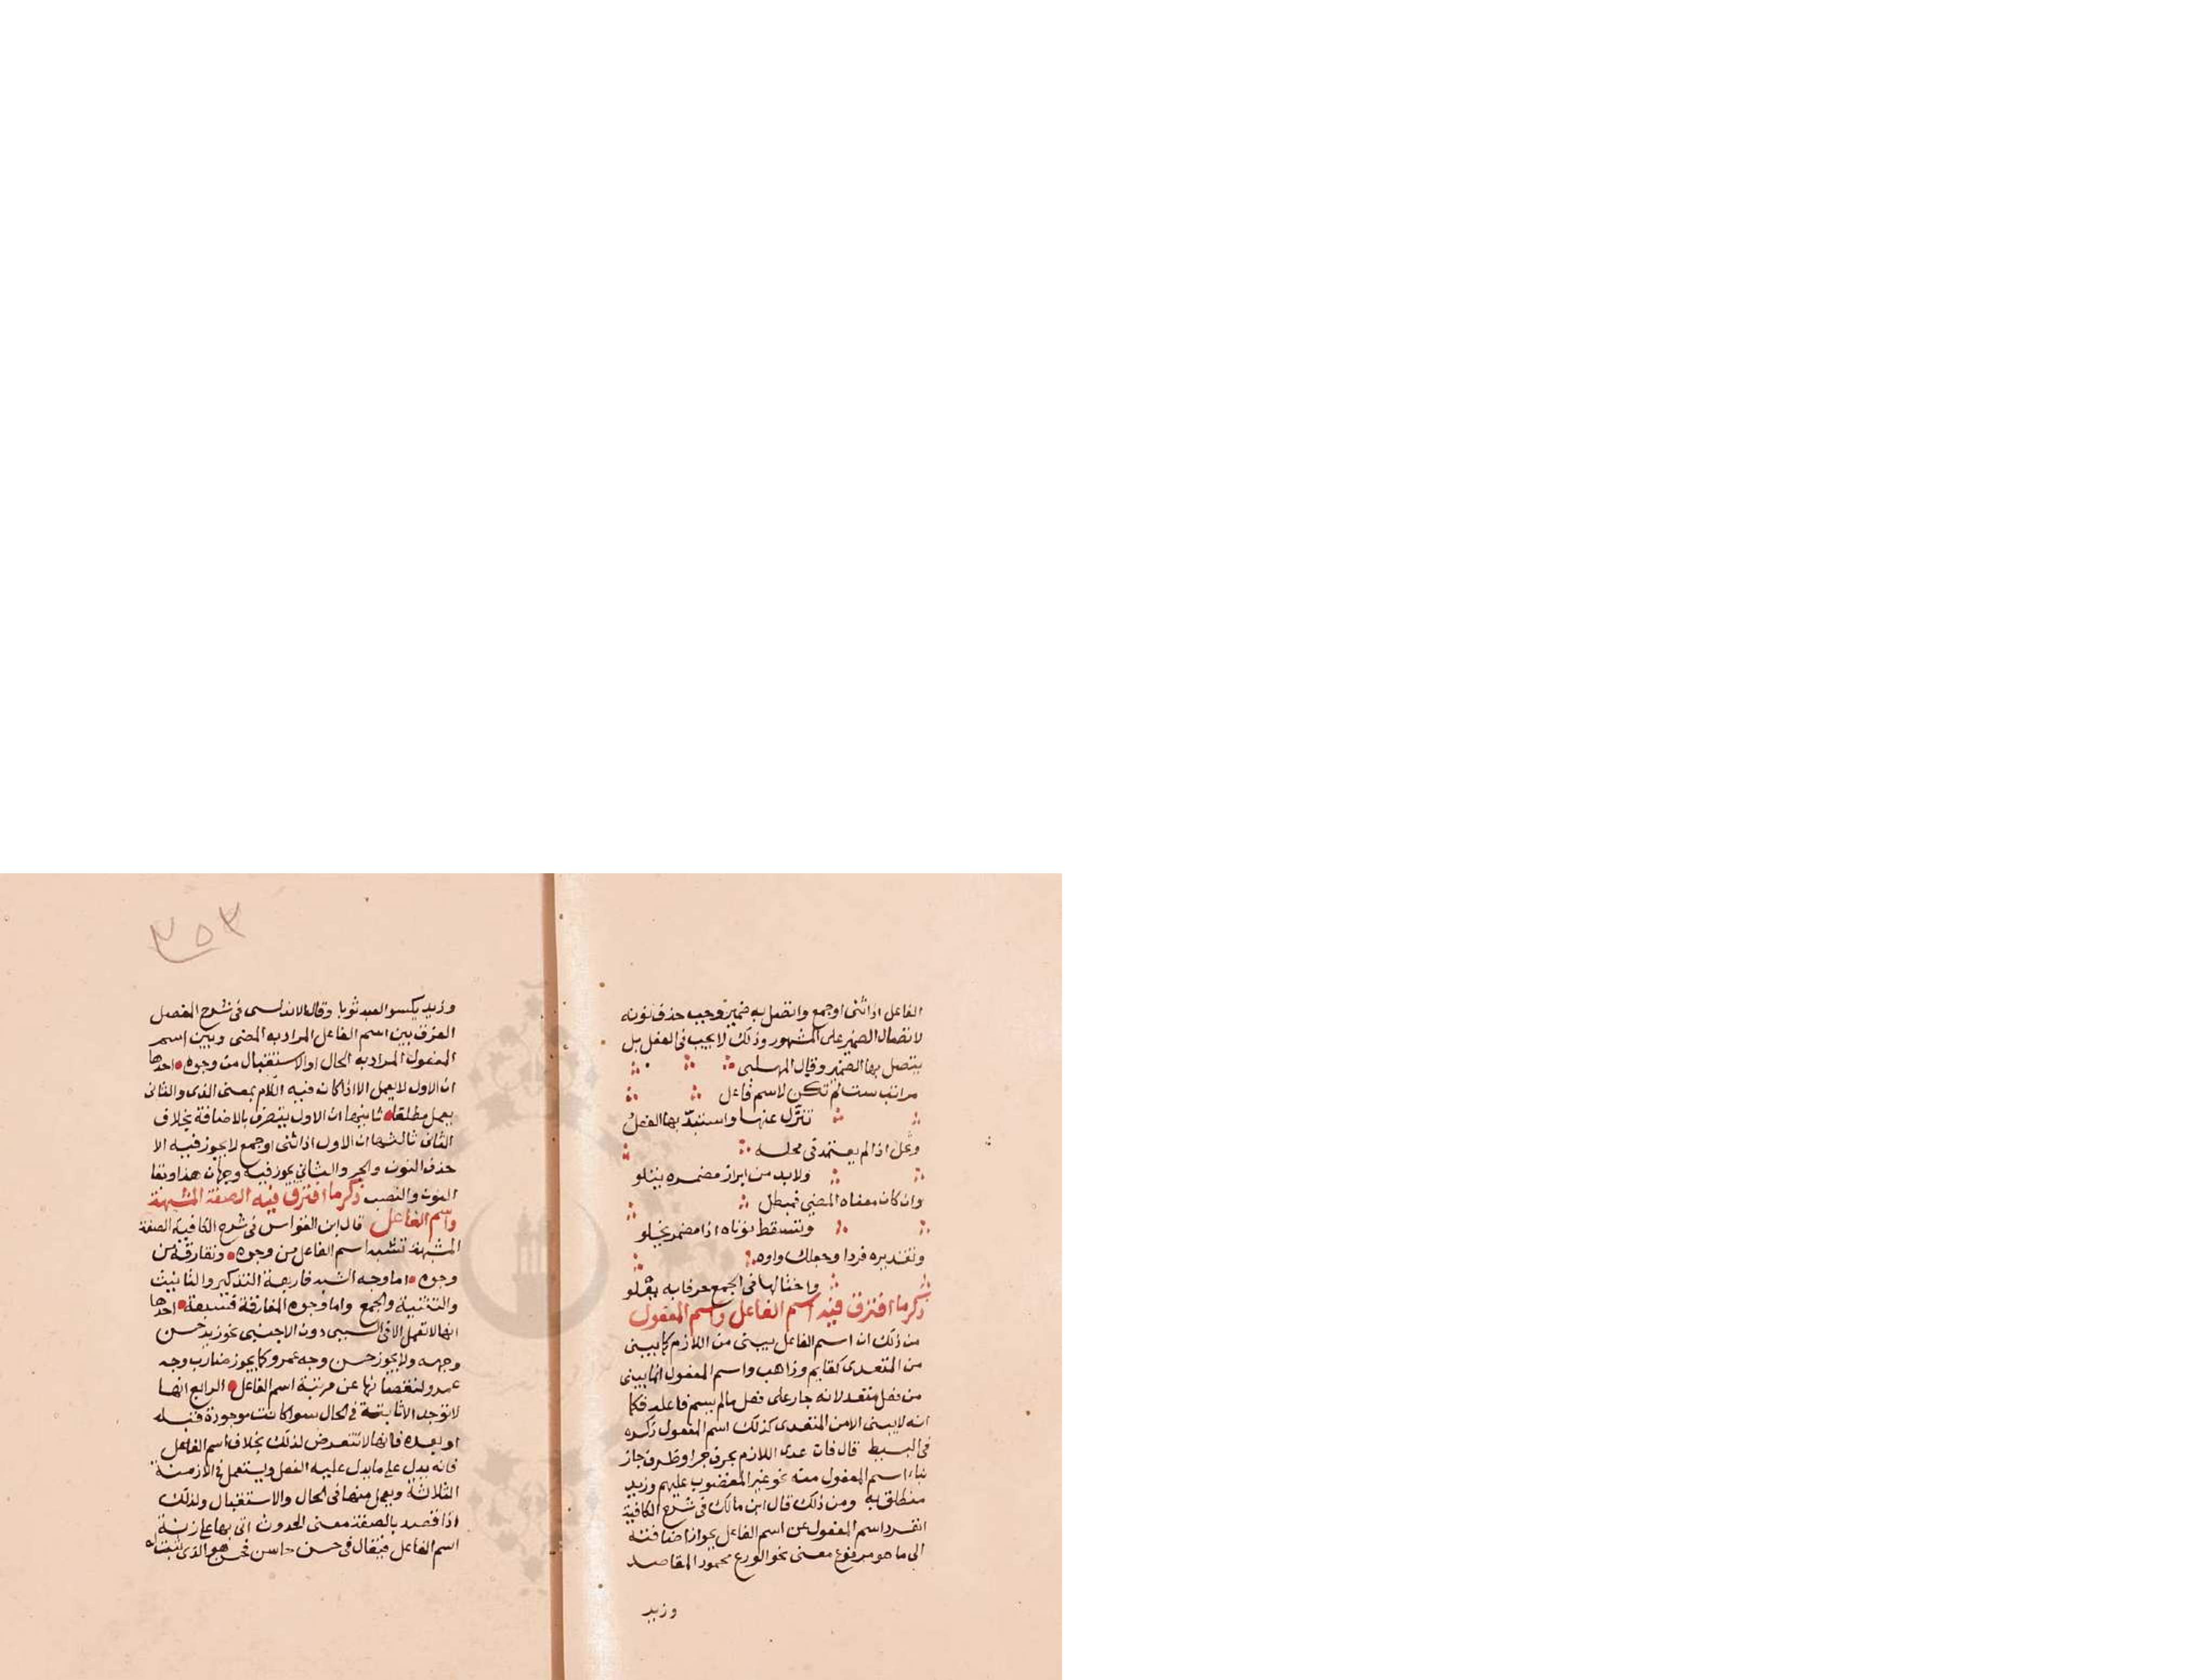 الفاعل اذا ثنى او جمع واتصل به ضمير وجب حذف نونه
لاتصال الضمير على المشهور وذلك لا يجب فى الفعل بل
يتصل بها الضمير وقال المهلبى
مراتب ست لم تكن لاسم فاعل
تنزل عنها واستبد بها الفعل
وعل اذا لم يعتمد فى محله
ولا بد من ابراز مضمره يتلو
وان كان معناه المضى فمبطل
وتسقط نوناه اذا مضمر يخلو
وتقديره فردا وجعلك واوه
واختالها فى الجمع حرفا به يقلو
ذكر ما افترق فيه اسم الفاعل واسم المفعول
من ذلك ان اسم الفاعل يبنى من اللازم كما يبنى
من المتعدى كقايم وذاهب واسم المفعول انما يبنى
من فعل متعد لانه جار على فعل مالم يسم فاعله فكما
انه لا يبنى الا من المتعدى كذلك اسم المفعول ذكره
فى البسيط قال فان عدى اللازم بحرف جر او ظرف جاز
بناء اسم المفعول منه نحو غير المغضوب عليهم وزيد
منطلق به ومن ذلك قال ابن مالك فى شرح الكافية
انفرد اسم المفعول عن اسم الفاعل بجواز اضافته
الى ما هو مرفوع معنى نحو الورع محمود المقاصد
وزيد
٣٥٣
وزيد يكسو العبد ثوبا وقال الاندلسى فى شرح المفصل
الفرق بين اسم الفاعل المراد به المضى وبين اسم
المفعول المراد به الحال او الاستقبال من وجوه احدها
ان الاول لا يعمل الا اذا كان فيه اللام بمعنى الذى والثانى
يعمل مطلقا ثانيها ان الاول يتعرف بالاضافة بخلاف
الثانى ثالثها ان الاول اذا ثنى او جمع لا يجوز فيه الا
حذف النون والجر والثانى يجوز فيه وجهان هذا وبقا
النون والنصب ذكر ما افترق فيه الصفة المشبهة
واسم الفاعل قال ابن القواس فى شرح الكافية الصفة
المشبهة تشبه اسم الفاعل من وجوه وتفارقه من
وجوه اما وجه الشبه فاربعة التذكير والتانيث
والتثنية والجمع واما وجوه المفارقة فسبعة احدها
انها لا تعمل الا فى السببى دون الاجنبى نحو زيد حسن
وجهه ولا يجوز حسن وجه عمرو كما يجوز ضارب وجه
عمرو لنقصانها عن مرتبة اسم الفاعل الرابع انها
لا توجد الا ثابتة فى الحال سوا كانت موجودة قبله
او بعده فانها لا تتعرض لذلك بخلاف اسم الفاعل
فانه يدل على ما يدل عليه الفعل ويستعمل فى الازمنة
الثلاثة ويعمل منها فى الحال والاستقبال ولذلك
اذا قصد بالصفة معنى الحدوث اتى بها على زنة
اسم الفاعل فيقال فى حسن حاسن فحسن هو الذى ثبت له